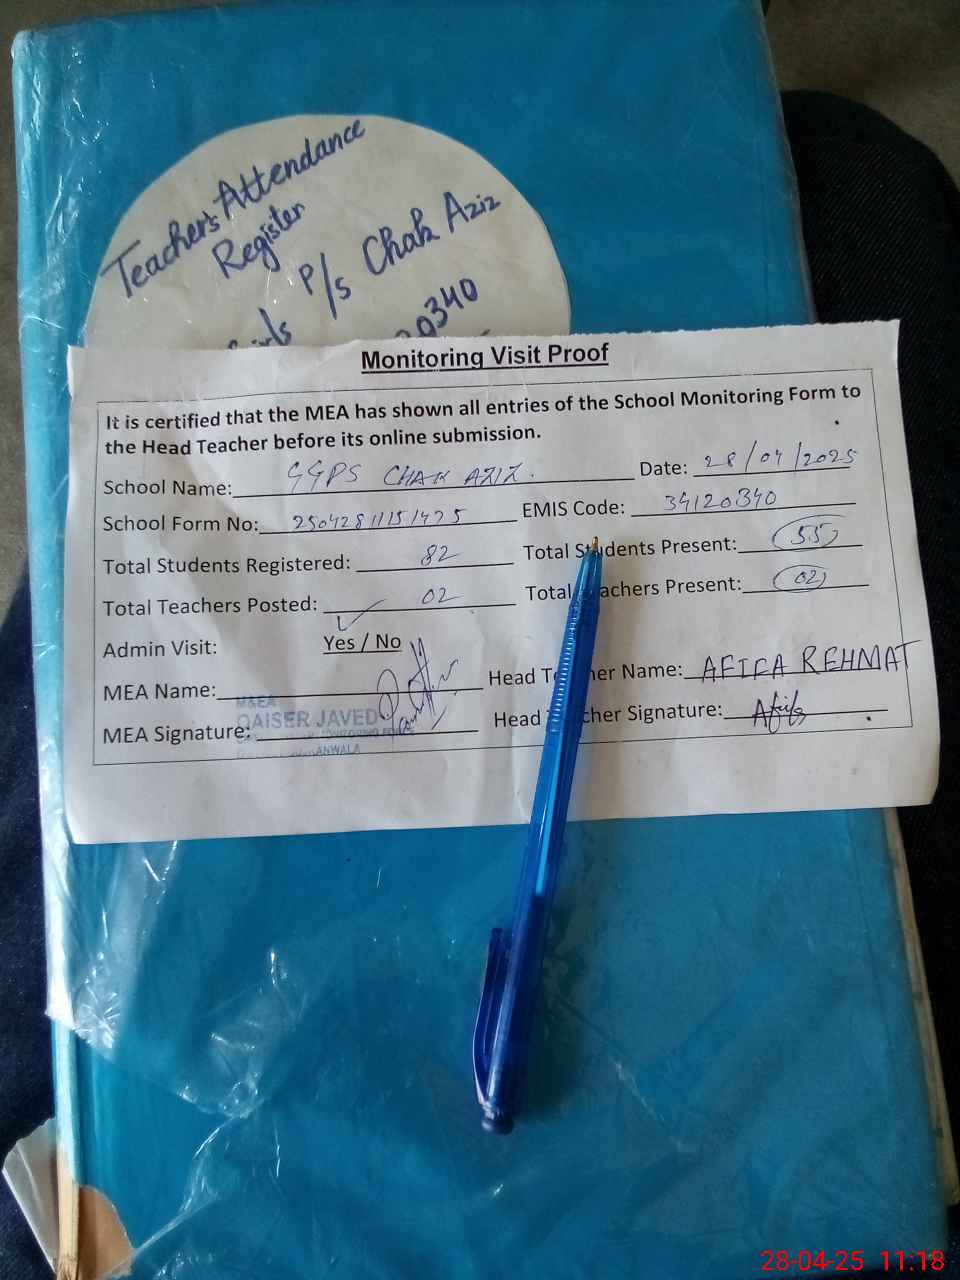 Teacher's Attendance
Register
Girls P/s Chak Aziz
20340
Monitoring Visit Proof
It is certified that the MEA has shown all entries of the School Monitoring Form to
the Head Teacher before its online submission.
School Name: GGPS CHAK AZIZ. Date: 28/04/2025
School Form No: 25042811151475 EMIS Code: 34120340
Total Students Registered: 82 Total Students Present: 55
Total Teachers Posted: 02 Total Teachers Present: 02
Admin Visit: Yes / No
MEA Name: Head Teacher Name: AFIFA REHMAT
M&EA
QAISER JAVED
MEA Signature: Head Teacher Signature: Afifa
ANWALA
28-04-25 11:18